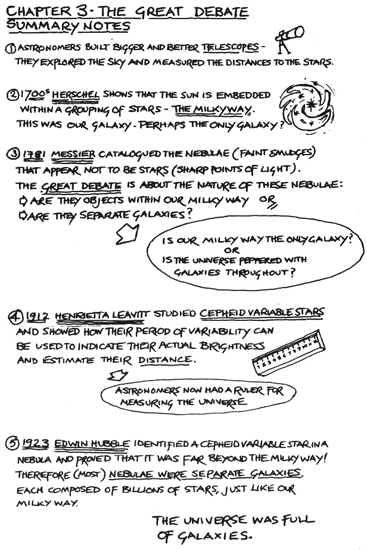 CHAPTER 3 - THE GREAT DEBATE
SUMMARY NOTES
① ASTRONOMERS BUILT BIGGER AND BETTER TELESCOPES -
THEY EXPLORED THE SKY AND MEASURED THE DISTANCES TO THE STARS.
② 1700s HERSCHEL SHOWS THAT THE SUN IS EMBEDDED
WITHIN A GROUPING OF STARS - THE MILKY WAY.
THIS WAS OUR GALAXY. PERHAPS THE ONLY GALAXY?
③ 1781 MESSIER CATALOGUED THE NEBULAE (FAINT SMUDGES)
THAT APPEAR NOT TO BE STARS (SHARP POINTS OF LIGHT).
THE GREAT DEBATE IS ABOUT THE NATURE OF THESE NEBULAE:
ARE THEY OBJECTS WITHIN OUR MILKY WAY OR
ARE THEY SEPARATE GALAXIES?
IS OUR MILKY WAY THE ONLY GALAXY?
OR
IS THE UNIVERSE PEPPERED WITH
GALAXIES THROUGHOUT?
④ 1912 HENRIETTA LEAVITT STUDIED CEPHEID VARIABLE STARS
AND SHOWED HOW THEIR PERIOD OF VARIABILITY CAN
BE USED TO INDICATE THEIR ACTUAL BRIGHTNESS
AND ESTIMATE THEIR DISTANCE.
ASTRONOMERS NOW HAD A RULER FOR
MEASURING THE UNIVERSE.
⑤ 1923 EDWIN HUBBLE IDENTIFIED A CEPHEID VARIABLE STAR IN A
NEBULA AND PROVED THAT IT WAS FAR BEYOND THE MILKY WAY!
THEREFORE (MOST) NEBULAE WERE SEPARATE GALAXIES,
EACH COMPOSED OF BILLIONS OF STARS, JUST LIKE OUR
MILKY WAY.
THE UNIVERSE WAS FULL
OF GALAXIES.